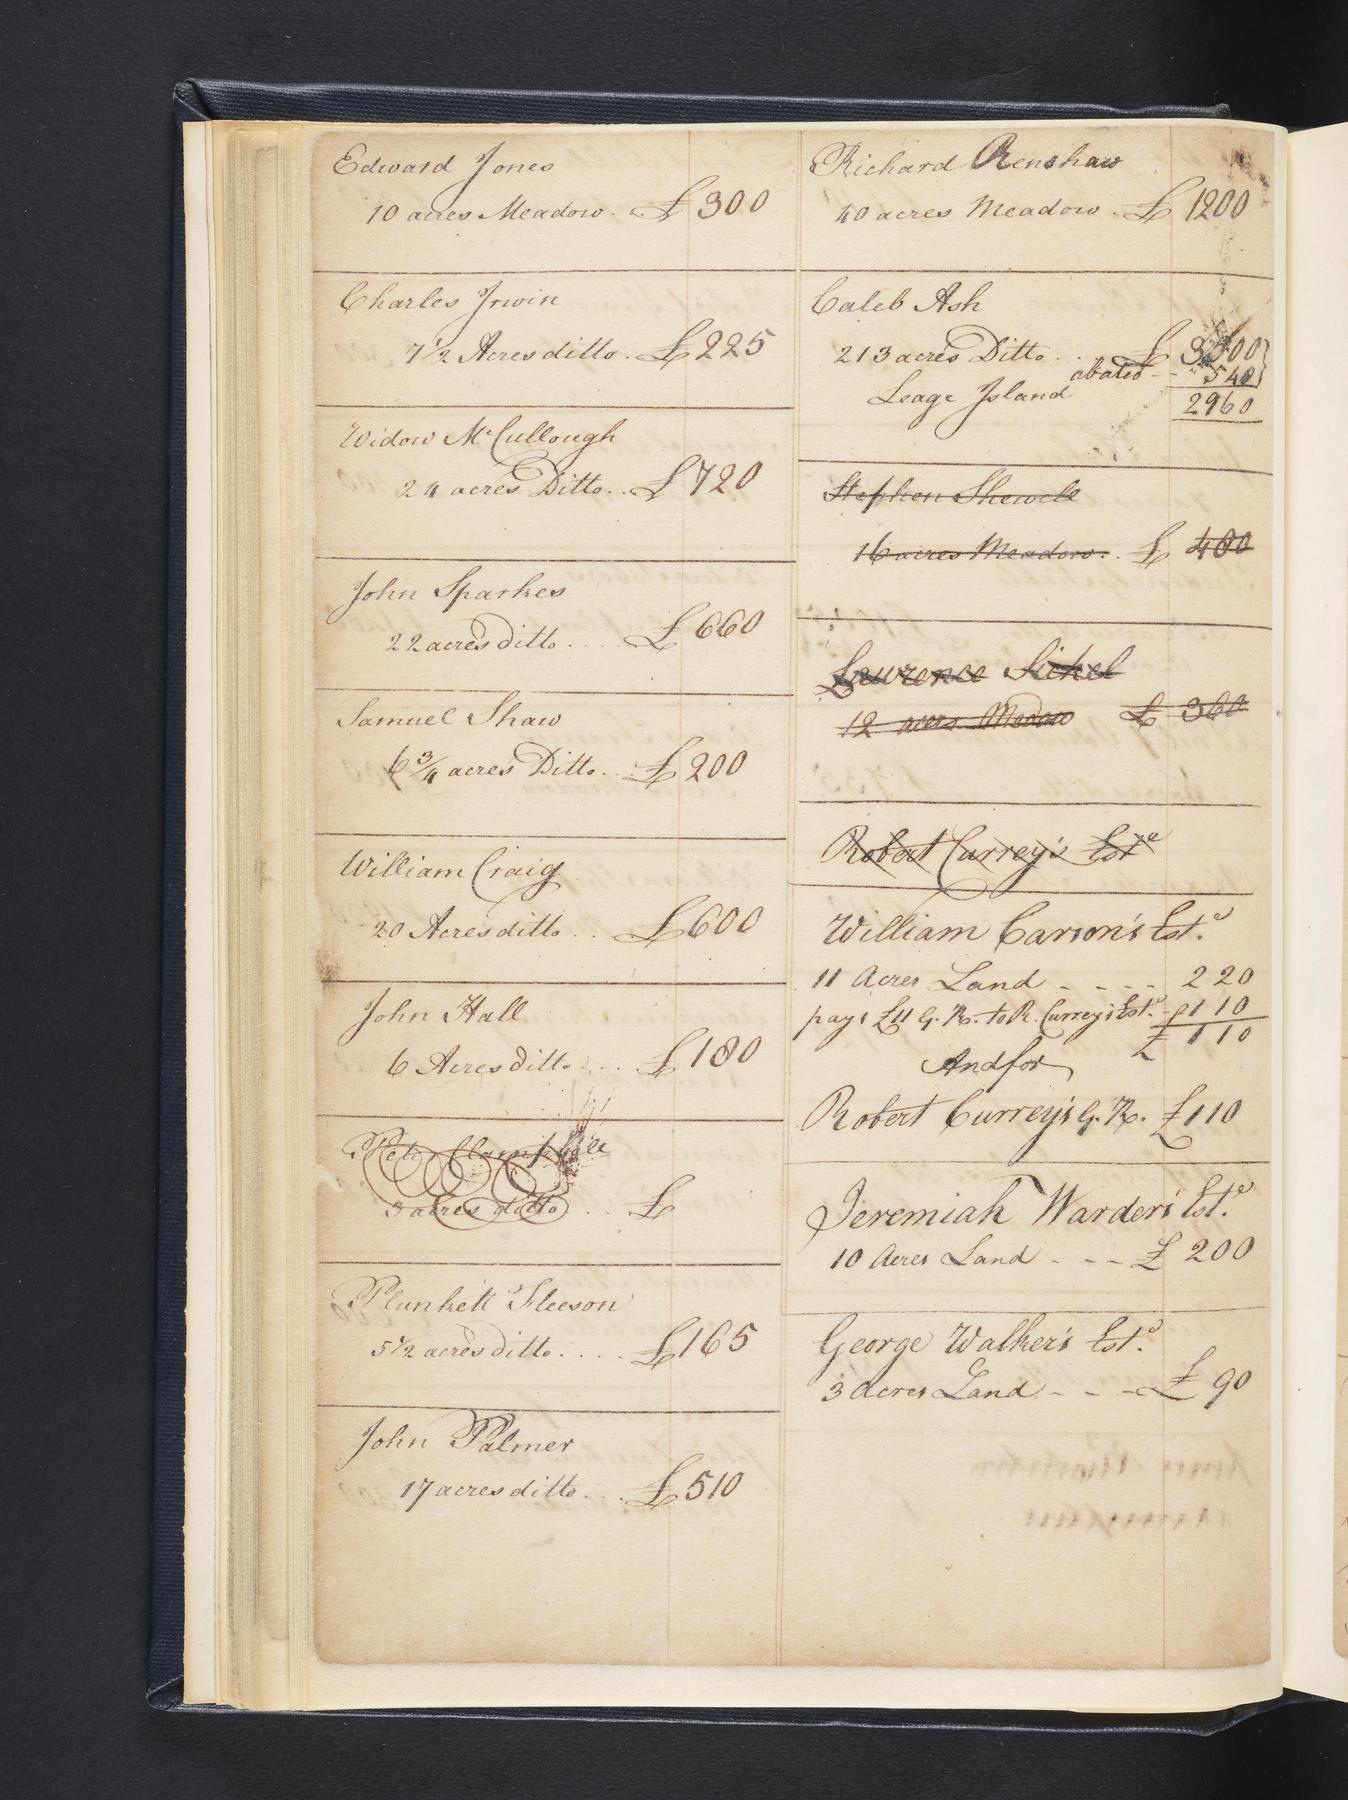 Edward Jones
10 acres Meadow. . £ 300
Charles Irwin
7 1/2 Acres ditto . £ 225
Widow McCullough
24 acres Ditto. . £ 720
John Sparkes
22 acres ditto . . . . £ 660
Samuel Shaw
6 3/4 acres Ditto. . £ 200
William Craig
20 Acres ditto . . £ 600
John Hall
6 Acres ditto . . . £ 180
3 acres ditto . . £
Plunkett Fleeson
5 1/2 acres ditto . . . . £ 165
John Palmer
17 acres ditto. . . £ 510
Richard Renshaw
40 acres Meadow . £ 1200
Caleb Ash
213 acres Ditto . . £ 3500
abated - - 540
Leage Island
2960
Stephen Shewell
16 acres Meadow. . £ 480
Lawrence Sickel
12 acers Medow £ 360
Robert Currey's Este
William Carson's Este.
11 Acres Land - - - - 220
pays £11 G. R. to R. Currey's Este. - £110
£ 110
And for
Robert Currey's G. R. £110
Jeremiah Warder's Este.
10 Acres Land - - - £ 200
George Walker's Este.
3 Acres Land - - - £ 90